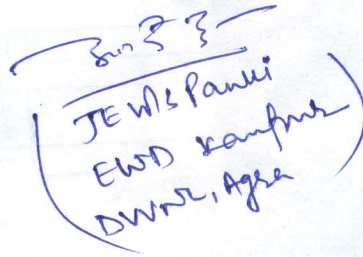 JEWB Panki
EWD Kanpur
DVVNL, Agra